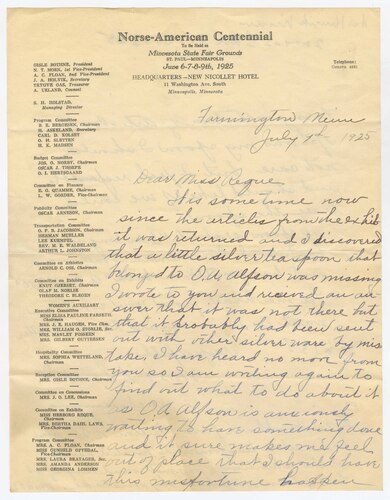 Norse-American Centennial
To Be Held at
Minnesota State Fair Grounds
ST. PAUL—MINNEAPOLIS
June 6-7-8-9th, 1925
HEADQUARTERS—NEW NICOLLET HOTEL
11 Washington Ave. South
Minneapolis, Minnesota
Telephone:
GISLE BOTHNE, President
N. T. MOEN, 1st Vice-President
A. C. FLOAN, 2nd Vice-President
J. A. HOLVIK, Secretary
TRYGVE OAS, Treasurer
A. UELAND, Counsel
S. H. HOLSTAD,
Managing Director
Program Committee
B. E. BERGESEN, Chairman
H. ASKELAND, Secretary
CARL D. KOLSET
O. H. SLETTEN
H. K. MADSEN
Budget Committee
JOS. G. NORBY, Chairman
OSCAR J. THORPE
O. I. HERTSGAARD
Committee on Finance
E. G. QUAMME, Chairman
L. W. GORDER, Vice-Chairman
Publicity Committee
OSCAR ARNESON, Chairman
Transportation Committee
O. P. B. JACOBSON, Chairman
HERMAN MUELLER
LEE KUEMPEL
REV. M. E. WALDELAND
ARTHUR J. JOHNSTON
Committee on Athletics
ARNOLD C. OSS, Chairman
Committee on Exhibits
KNUT GJERSET, Chairman
OLAF M. NORLIE
THEODORE C. BLEGEN
WOMEN'S AUXILIARY
Executive Committee
MISS ELISA FARSETH, Chairman
MRS. WILLIAM O. STORLIE, Sec.
MRS. MANLEY FOSSEEN
MRS. GILBERT GUTTERSEN
Hospitality Committee
Chairman
Reception Committee
MRS. GISLE BOTHNE, Chairman
Committee on Concessions
MRS. J. O. LEE, Chairman
Committee on Exhibits
MISS HERBORG REQUE, Chairman
MRS. BERTHA DAHL LAWS,
Vice-Chairman
Program Committee
MRS. A. C. FLOAN, Chairman
MISS GUNHILD OFTEDAL,
Vice-Chairman
MRS. LAURA BRATAGER, Sec.
MRS. AMANDA ANDERSON
MISS GEORGINA LOMMEN
Farmington Minn
July 1925
Dear Miss Reque
It is some time now
since the articles from the exhib
it was returned and I discovered
that a little silver teaspoon that
belonged to O.A. Alfson was missing
I wrote to you and recieved an an
swer that it was not there but
that it probably had been sent
out with other silver ware by mis
take. I have heard no more from
you so I am writing again to
find out what to do about it
as O.A. Alfson is anxiously
waiting to have something done
and it sure makes me feel
out of place that I should have
this misfortune happen